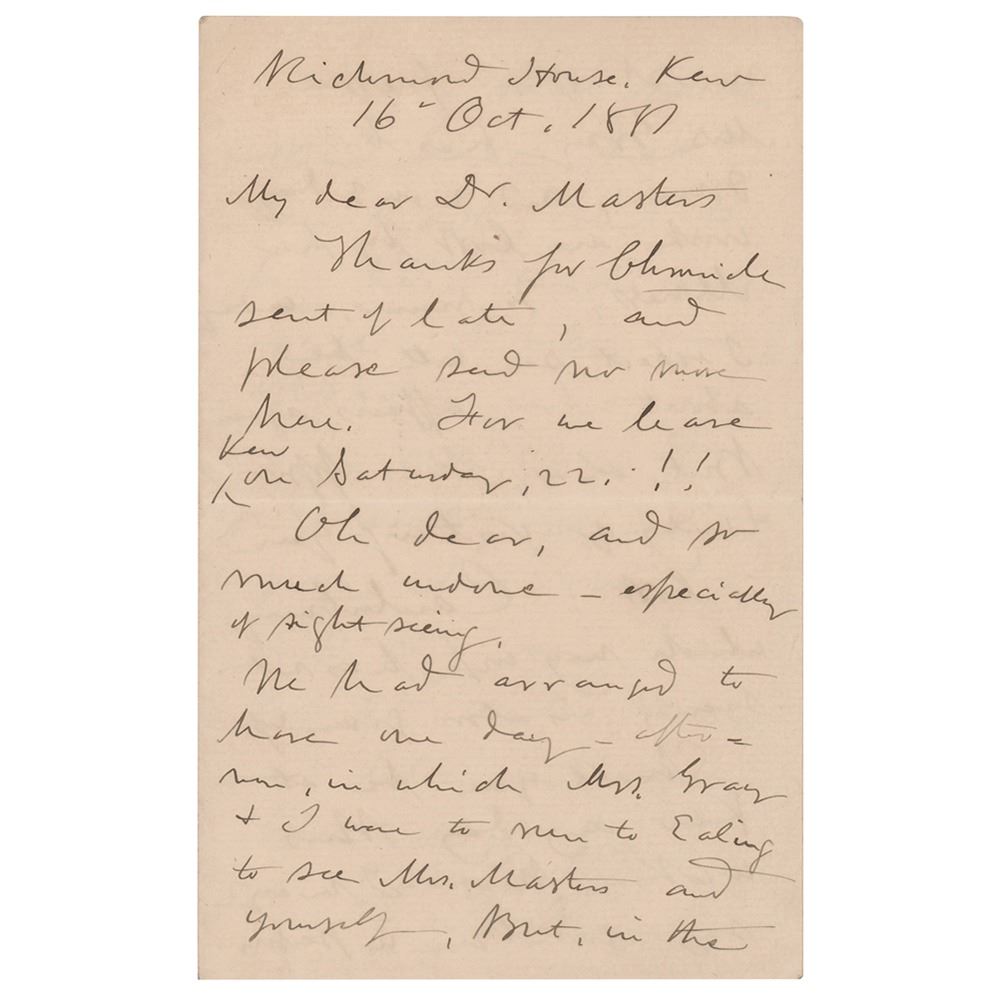 Richmond House, Kew
16 Oct. 1881
My dear Dr. Masters
Thanks for Chronicle
sent of late, and
please send no more
here. For we leave
Kew
on Saturday, 22. !!
Oh dear, and so
much undone – especially
of sight seeing.
We had arranged to
have one day – after-
noon, in which Mrs. Gray
& I were to run to Ealing
to see Mrs. Masters and
yourself, But, in the